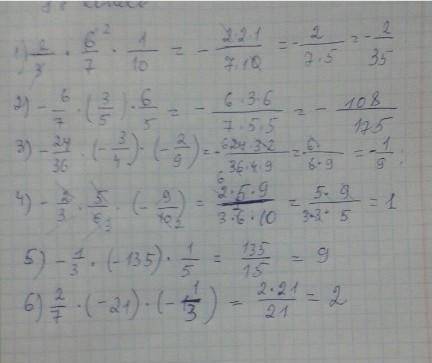 1) 2/3 · 6²/7 · 1/10 = - 2·2·1/7·10 = - 2/7·5 = - 2/35
2) - 6/7 · (3/5) · 6/5 = - 6·3·6/7·5·5 = - 108/175
3) - 24/36 · (- 3/4) · (- 2/9) = - 24·3·2/36·4·9 = - 6/6·9 = - 1/9
4) - 2/3 · 5/6 · (- 9/10) = 2·5·9/3·6·10 = 5·9/3·3·5 = 1
5) - 1/3 · (-135) · 1/5 = 135/15 = 9
6) 2/7 · (-21) · (- 1/3) = 2·21/21 = 2